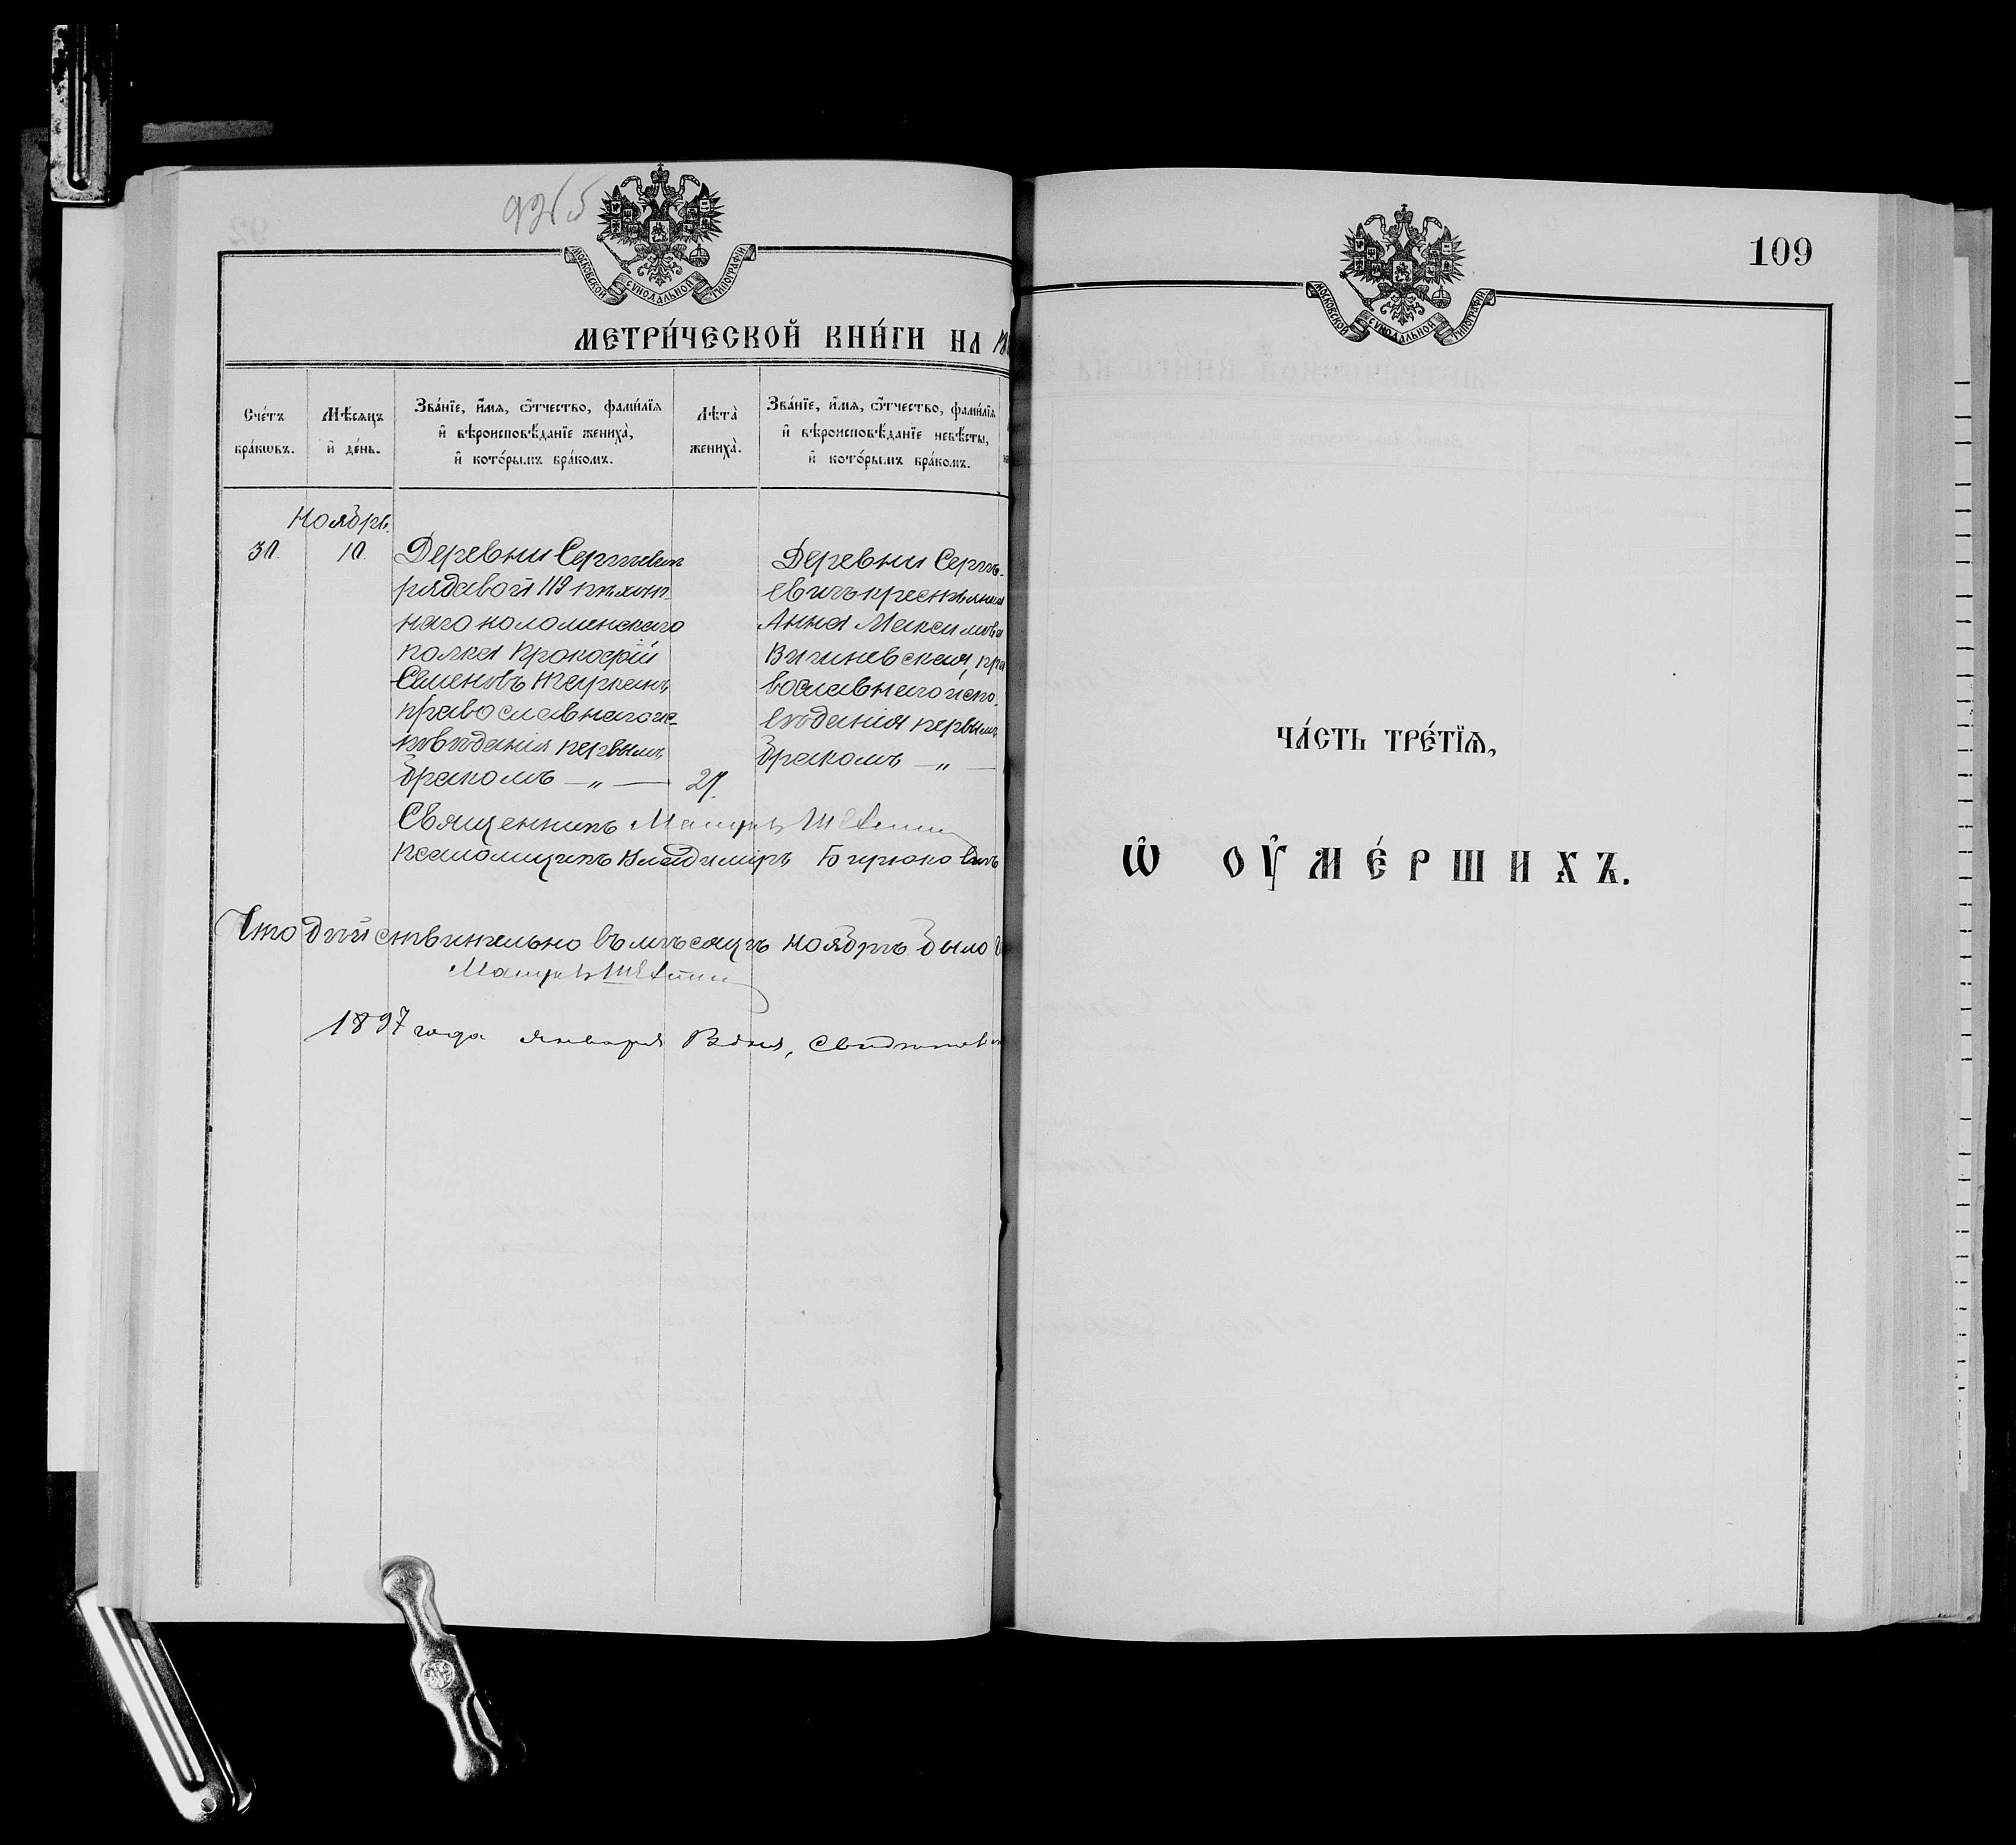 МОСКОВСКОЙ СѴНОДАЛЬНОЙ ТИПОГРАФІИ
МЕТРИ́ЧЕСКОЙ КНИ́ГИ НА
Сче́тъ бра́кѡвъ.
Мѣсяцъ и҆ де́нь.
Зва́нїе, и҆́мѧ, ѻ҆́тчество, фамі́лїѧ
и҆ вѣроисповѣ́данїе жениха̀,
и҆ кото́рымъ бра́комъ.
Лѣта̀ жениха̀.
Зва́нїе, и҆́мѧ, ѻ҆́тчество, фамі́лїѧ
и҆ вѣроисповѣ́данїе невѣ́сты,
и҆ кото́рымъ бра́комъ.
Ноябрь.
30. 10.
Деревни Сергѣевичъ
рядавой 119 пѣхот-
наго коломенскаго
полка Прокофій
Семеновъ
православнаго ис-
повѣданія первымъ
бракомъ — „ — 27.
Деревни Сергѣ-
евичъ крестьянка
Анна Максимова
Вишневская, пра
вославнаго испо-
вѣданія первымъ
бракомъ — „ —
Священникъ
псаломщикъ Владиміръ Бирюковичъ
Что дѣйствительно въ мѣсяцѣ ноябрѣ было
1897 года января
109
МОСКОВСКОЙ СѴНОДАЛЬНОЙ ТИПОГРАФІИ
ЧА́СТЬ ТРЕ́ТЇѦ,
Ѡ҆ ОУ҆МЕ́РШИХЪ.